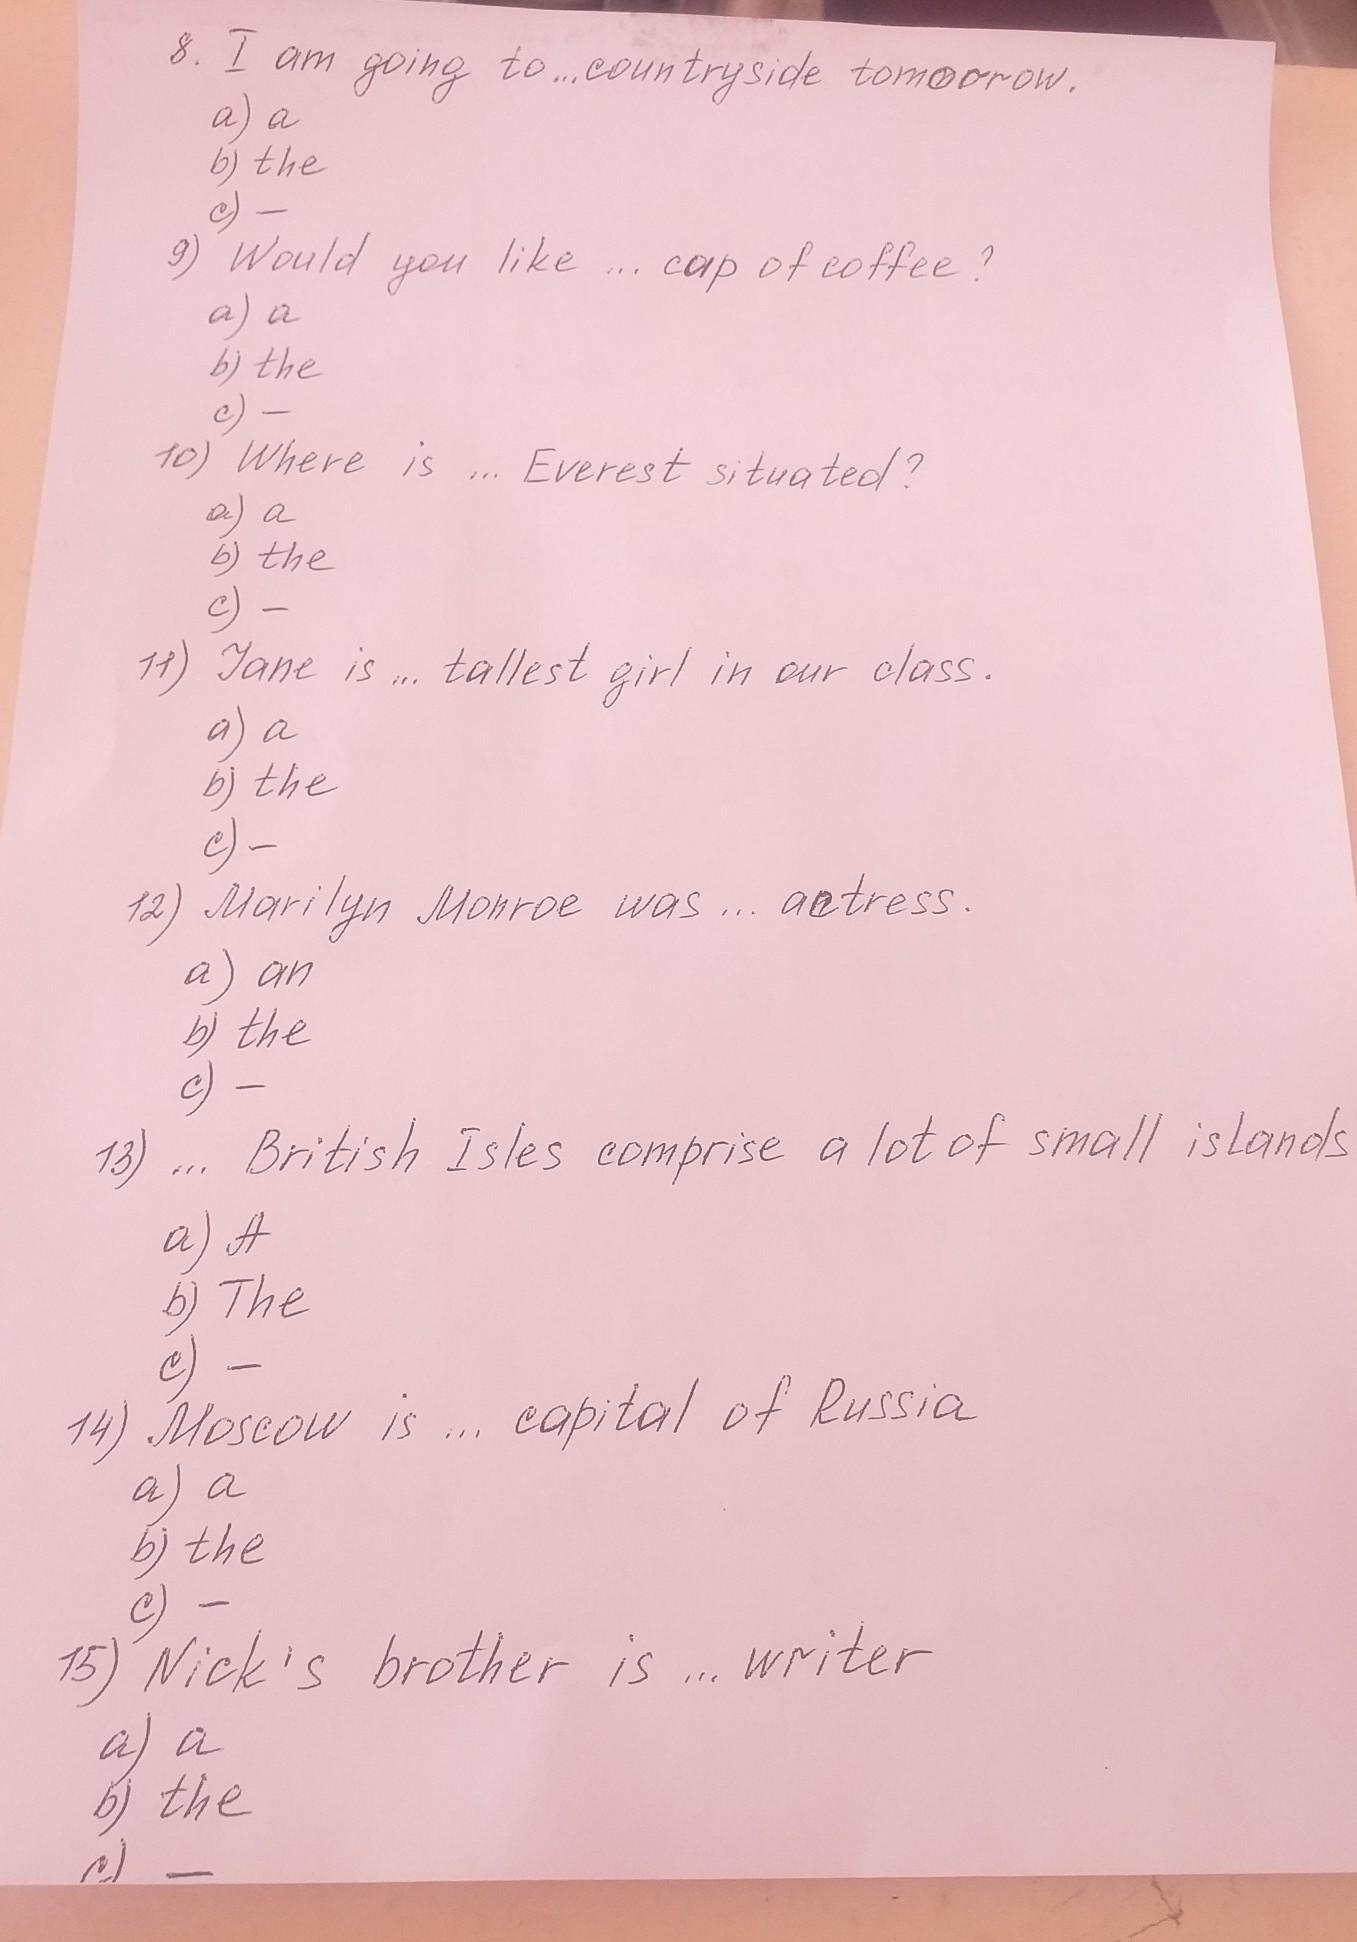 8. I am going to...countryside tomorrow.
a) a
b) the
c) —
9) Would you like ... cap of coffee?
a) a
b) the
c) —
10) Where is ... Everest situated?
a) a
b) the
c) —
11) Jane is ... tallest girl in our class.
a) a
b) the
c) —
12) Marilyn Monroe was ... actress.
a) an
b) the
c) —
13) ... British Isles comprise a lot of small islands
a) A
b) The
c) —
14) Moscow is ... capital of Russia
a) a
b) the
c) —
15) Nick's brother is ... writer
a) a
b) the
c) —